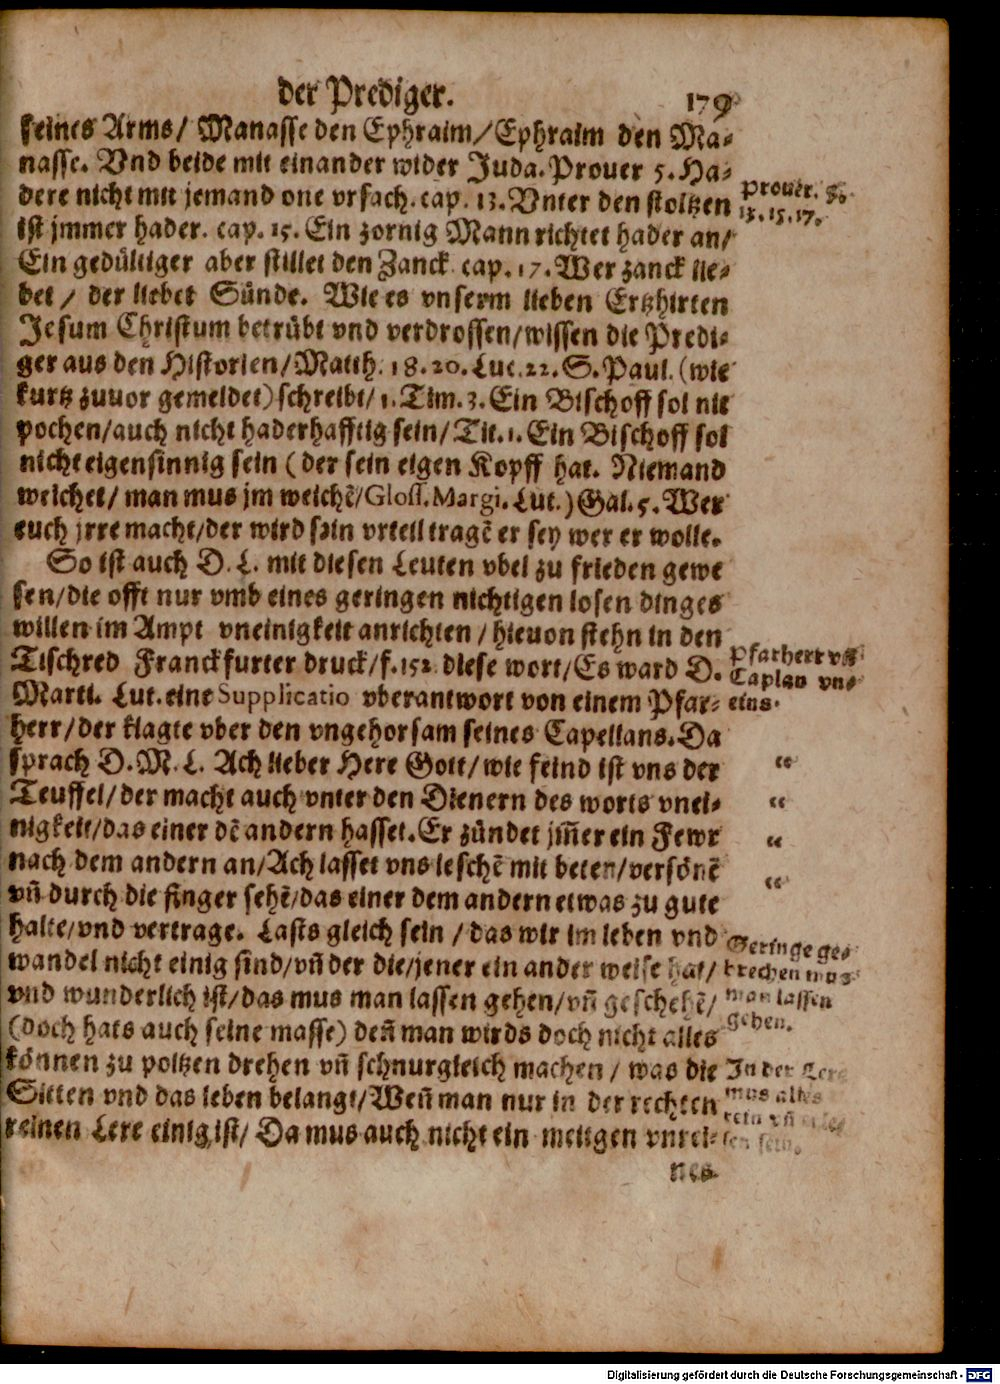 der Prediger. 179
seines Arms/ Manasse den Ephraim/Ephraim den Ma-
nasse. Vnd beide mit einander wider Juda. Prouer 5. Ha-
dere nicht mit jemand one vrsach. cap. 13. Vnter den stoltzen
ist jmmer hader. cap. 15. Ein zornig Mann richtet hader an/
Ein gedültiger aber stillet den Zanck. cap. 17. Wer zanck lie-
bet / der liebet Sünde. Wie es vnserm lieben Ertzhirten
Jesum Christum betrübt vnd verdrossen/wissen die Predi-
ger aus den Historien/Matth. 18. 20. Luc. 22. S. Paul. (wie
kurtz zuuor gemeldet) schreibt/ 1. Tim. 3. Ein Bischoff sol nit
pochen/auch nicht haderhafftig sein/ Tit. 1. Ein Bischoff sol
nicht eigensinnig sein ( der sein eigen Kopff hat. Niemand
weichet/ man mus jm weichē/Gloss. Margi. Lut.) Gal. 5. Wer
euch jrre macht/der wird sein vrteil tragē er sey wer er wolle.
So ist auch D. L. mit diesen Leuten vbel zu frieden gewe
sen/die offt nur vmb eines geringen nichtigen losen dinges
willen im Ampt vneinigkeit anrichten / hieuon stehn in den
Tischred Franckfurter druck/f. 152 diese wort/Es ward D.
Marti. Lut. eine Supplicatio vberantwort von einem Pfar-
herr/der klagte vber den vngehorsam seines Capellans. Da
sprach D. M. L. Ach lieber Herr Gott/wie feind ist vns der
Teuffel/der macht auch vnter den Dienern des worts vnei-
nigkeit/das einer dē andern hasset. Er zündet jm̄er ein Fewr
nach dem andern an/Ach lasset vns leschē mit beten/versönē
vn̄ durch die finger sehē/das einer dem andern etwas zu gute
halte/vnd vertrage. Lasts gleich sein / das wir im leben vnd
wandel nicht einig sind/vn̄ der die/jener ein ander weise hat/
vnd wunderlich ist/das mus man lassen gehen/vn̄ geschehē/
(doch hats auch seine masse) den̄ man wirds doch nicht alles
können zu poltzen drehen vn̄ schnurgleich machen / was die
Sitten vnd das leben belangt/Wen̄ man nur in der rechten
reinen Lere einig ist/ Da mus auch nicht ein meitgen vnrei-
nes
Prouer.
13. 15. 17.
Pfarherr vn̄
Caplan vn-
eins.
“
“
“
“
Geringe ge-
brechen mus
man lassen
gehen.
In der Lere
mus alles
rein vn̄
sein.
Digitalisierung gefördert durch die Deutsche Forschungsgemeinschaft - DFG